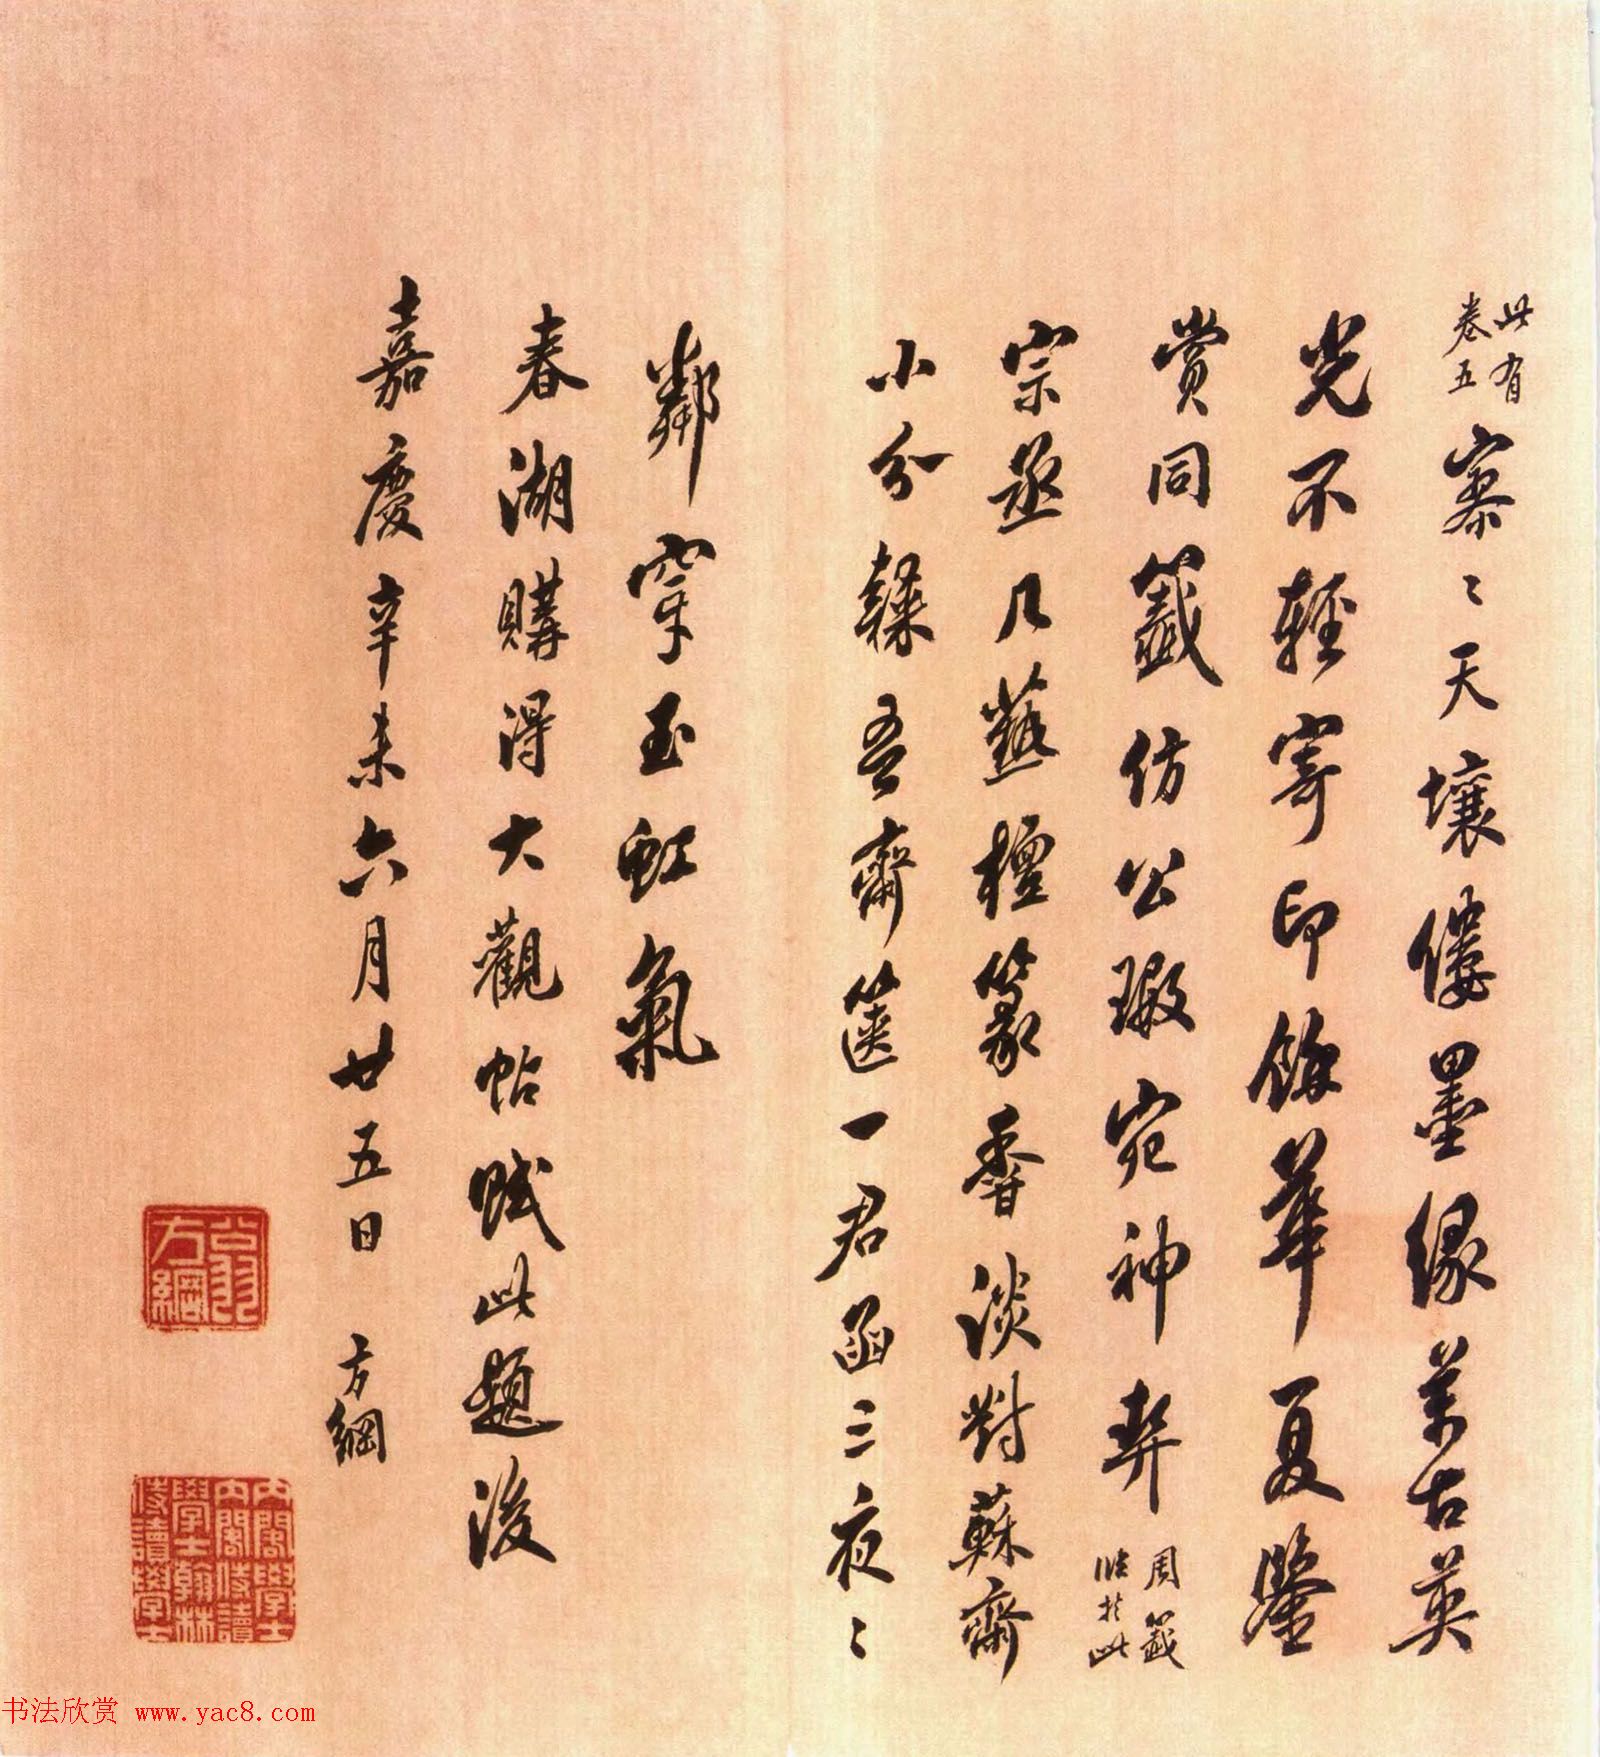 此有
卷五
寥〻天壤偻墨緣萬古英
光不輕寄印餘華夏鑒
賞同籤仿公瑕宛神契
周籤
臨於此
宗丞几蓺檀篆香淡對蘇齋
小分隸吾齋篋一君函三夜〻
鄰穿玉虹氣
春湖購得大觀帖賦此題後
嘉慶辛未六月廿五日 方綱
公羽
方綱
內閣學士
內閣侍讀
學士翰林
侍讀學士
书法欣赏 www.yac8.com